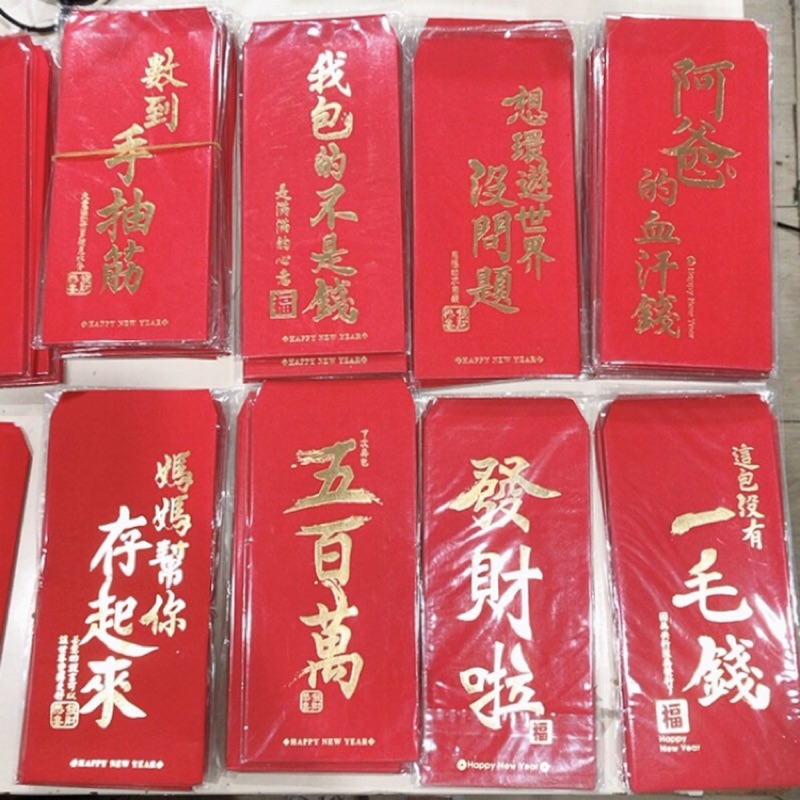 數到
手抽筋
HAPPY NEW YEAR
我包的不是錢
是滿滿的心意
福
HAPPY NEW YEAR
HAPPY NEW YEAR
想環遊世界
沒問題
HAPPY NEW YEAR
阿爸
的血汗錢
Happy New Year
媽媽幫你
存起來
HAPPY NEW YEAR
下次再包
五百萬
HAPPY NEW YEAR
發財啦
福
Happy New Year
這包沒有
一毛錢
福
Happy
New Year